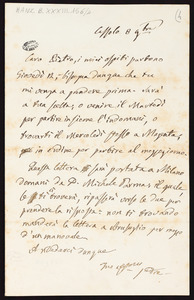 MANZ. B. XXXIII. 106/2
Cassolo 8 9bre
Cara Bista, i miei ospiti partono
giovedì 12, bisogna dunque che tu
mi venga a prendere prima. Sarà a
tua scelta, o venire il Martedì
per partire insieme l'indomani, o
trovarti il Mercoledì presso a Magenta,
in ordine per partire al mezzogiorno.
Questa lettera sarà portata a Milano
domani da D. Michele Parma, il quale
se ti troverà, ripasserà verso le due per
prendere la risposta: non ti trovando
manderà la lettera a Brusuglio per mezzo
d'un manovale.
A rivederci dunque
tuo